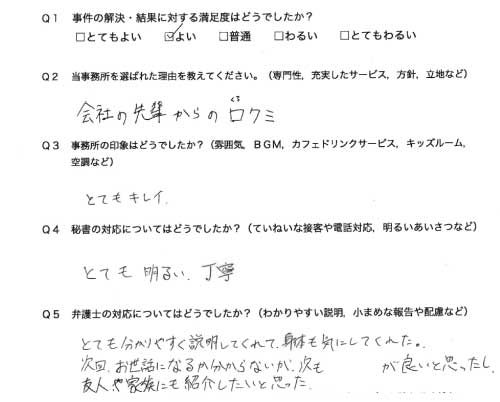 Q1 事件の解決・結果に対する満足度はどうでしたか?
□とてもよい ☑よい □普通 □わるい □とてもわるい
Q2 当事務所を選ばれた理由を教えてください。(専門性,充実したサービス,方針,立地など)
会社の先輩からの口クミ
Q3 事務所の印象はどうでしたか?(雰囲気,BGM,カフェドリンクサービス,キッズルーム,
空調など)
とてもキレイ.
Q4 秘書の対応についてはどうでしたか?(ていねいな接客や電話対応,明るいあいさつなど)
とても明るい.丁寧
Q5 弁護士の対応についてはどうでしたか?(わかりやすい説明,小まめな報告や配慮など)
とても分かりやすく説明してくれて、身体も気にしてくれた。
次回、お世話になるか分からないが、次も が良いと思ったし、
友人や家族にも紹介したいと思った.